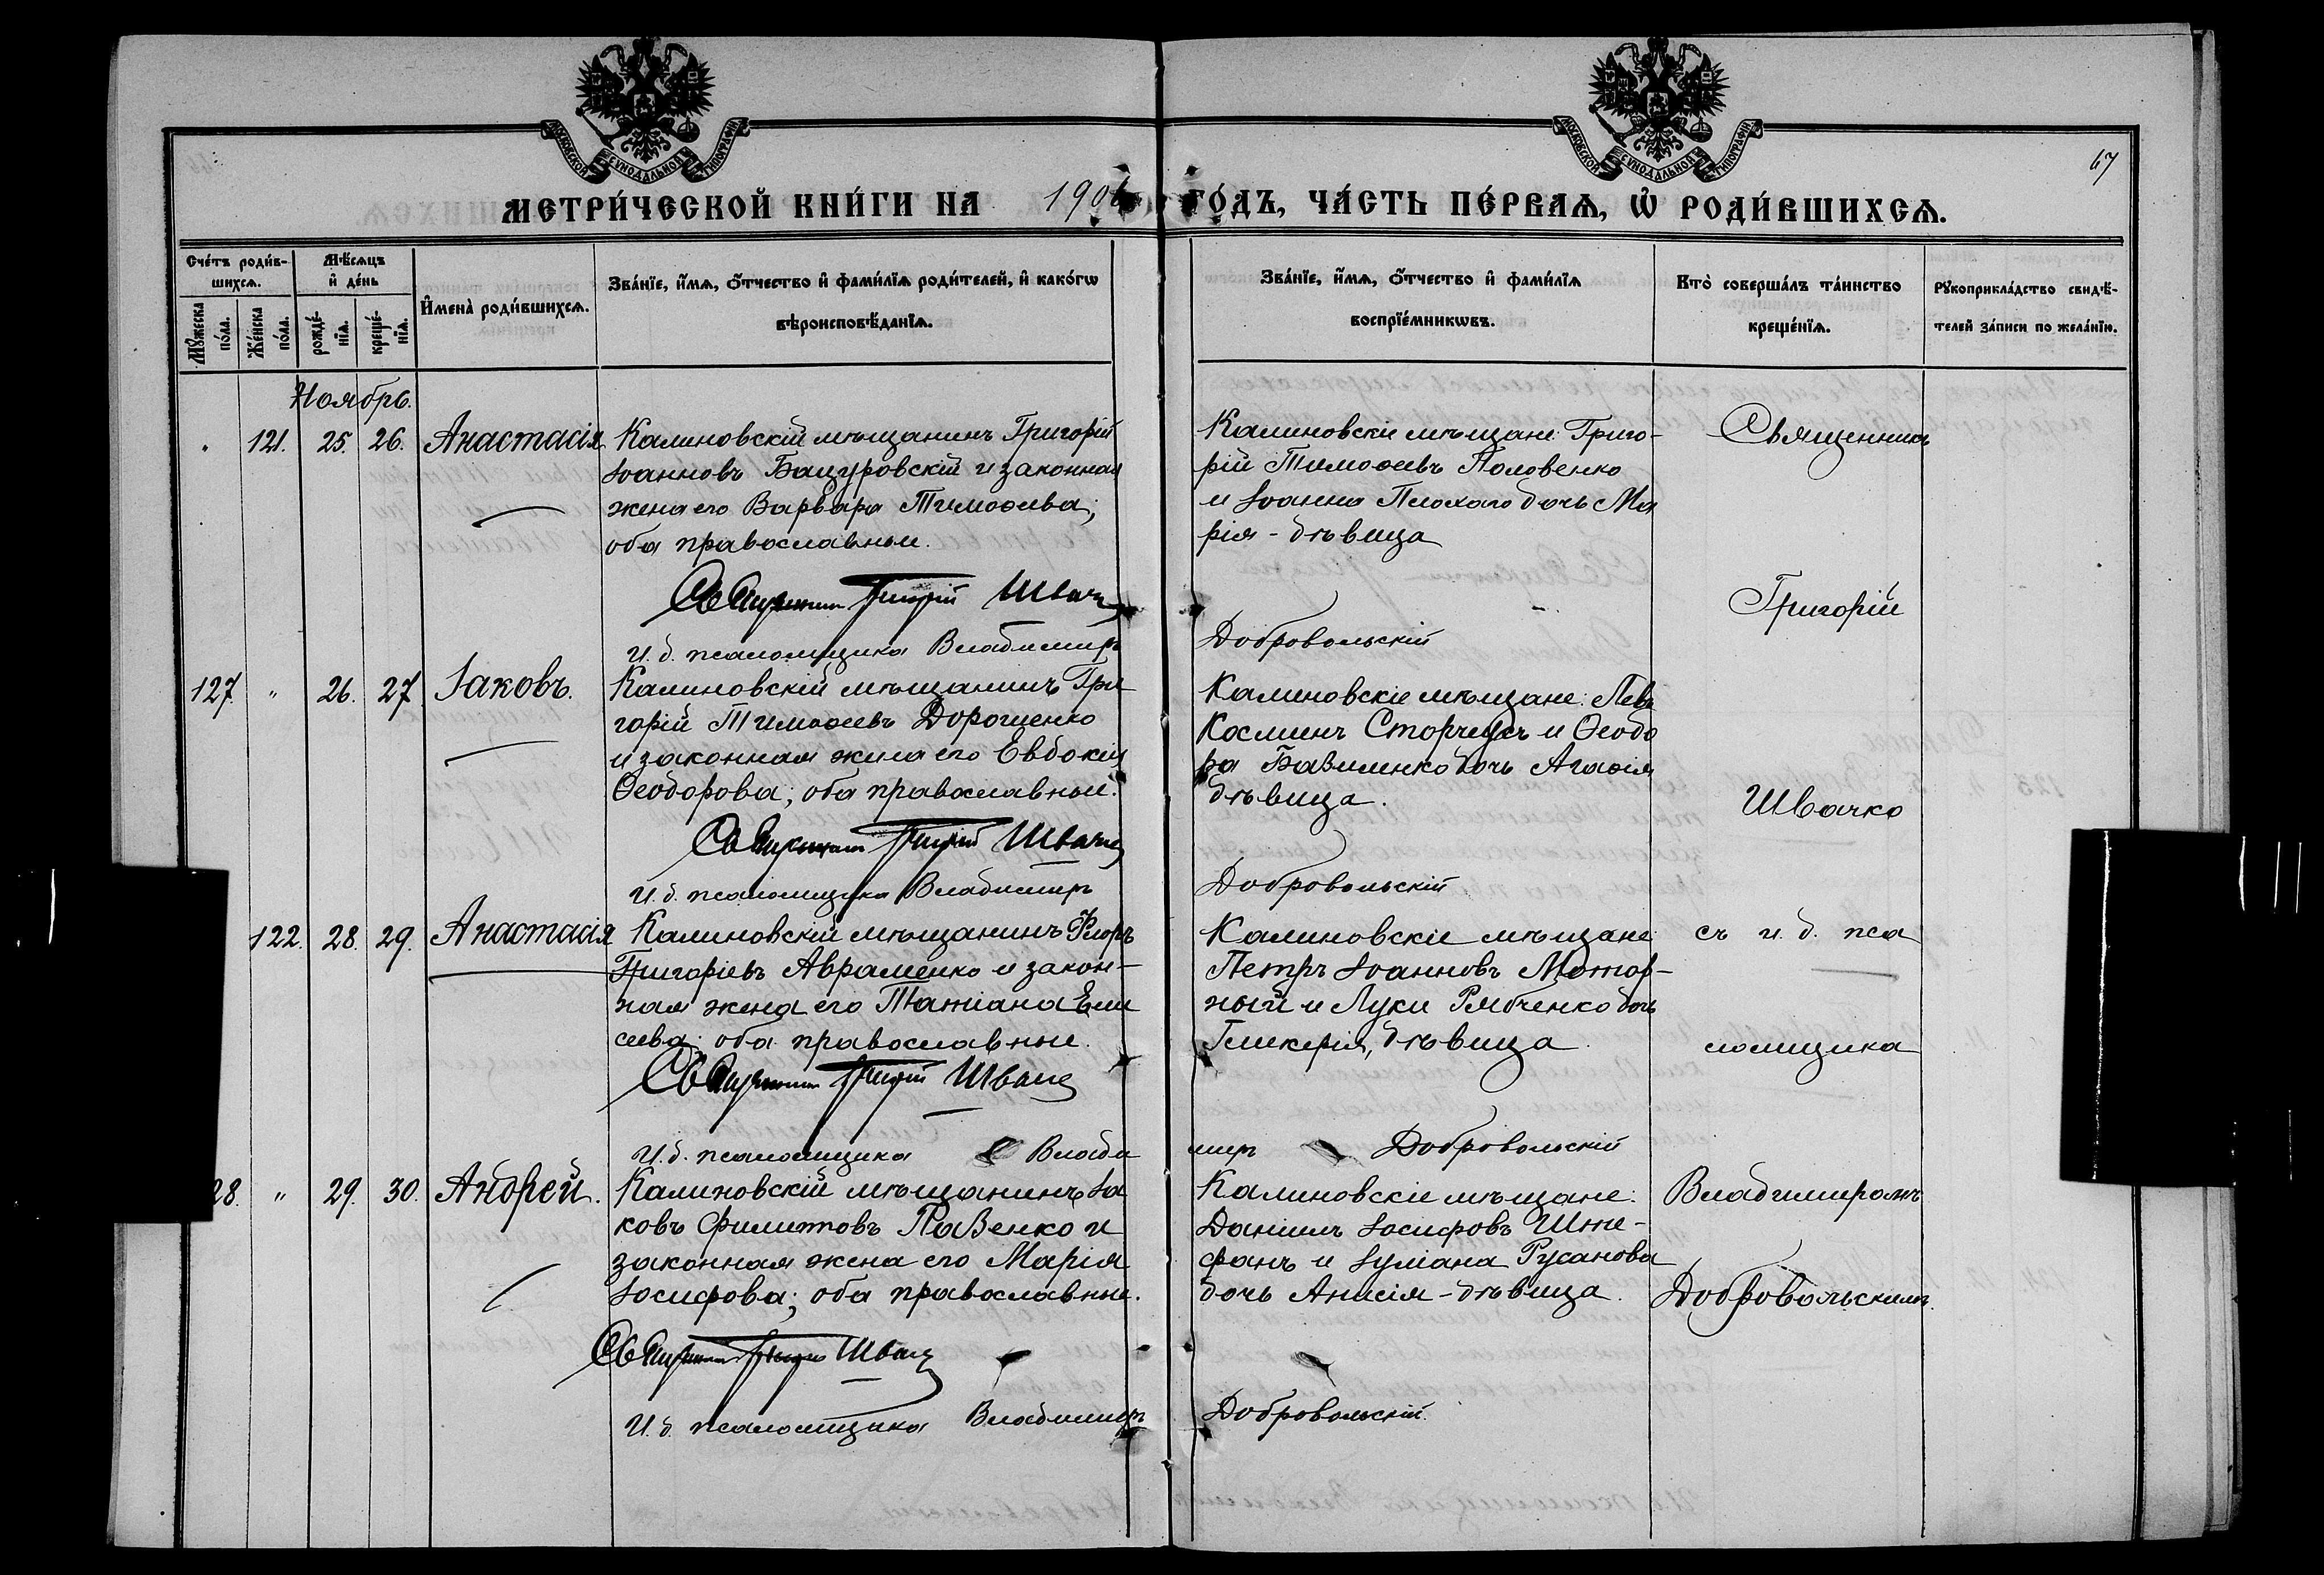 МОСКОВСКОЙ СѴНОДАЛЬНОЙ ТИПОГРАФІИ.
МОСКОВСКОЙ СѴНОДАЛЬНОЙ ТИПОГРАФІИ.
67
МЕТРИ́ЧЕСКОЙ КНИ́ГИ НА 1906 ГО́ДЪ, ЧА́СТЬ ПЕ́РВАѦ, Ѡ РОДИ́ВШИХСѦ.
Сче́тъ роди́в-
шихсѧ.
Мꙋ́жеска
по́ла.
Же́нска
по́ла.
Мѣ́сѧцъ
и҆ де́нь
рожде́-
нїѧ.
креще́-
нїѧ.
И҆мена̀ роди́вшихсѧ.
Зва́нїе, и҆́мѧ, ѻ҆́тчество и҆ фами́лїѧ роди́телей, и҆ како́гѡ
вѣроисповѣ́данїѧ.
Зва́нїе, и҆́мѧ, ѻ҆́тчество и҆ фами́лїѧ
воспрїе́мникѡвъ.
Кто̀ соверша́лъ та́инство
креще́нїѧ.
Рꙋкоприкла́дство свидѣ́-
телей за́писи по жела́нїю.
Ноябрь.
" 121. 25. 26. Анастасія
Калиновскій мѣщанинъ Григорій
Іоанновъ Бацуровскій и законная
жена его Варвара Тимоѳеева;
оба православные.
Священникъ Григорій Швачко
И. д. псаломщика Владимиръ Добровольскій
Калиновскіе мѣщане: Григо-
рій Тимоѳеевъ Половенко
и Іоанна Плохаго дочь Ма
рія - дѣвица
Священникъ
Григорій
127. " 26. 27 Іаковъ.
Калиновскій мѣщанинъ Гри
горій Тимоѳеевъ Дорошенко
и законная жена его Евдокія
Ѳеодорова; оба православные.
Священникъ Григорій Швачко
И. д. псаломщика Владимиръ Добровольскій
Калиновскіе мѣщане: Левъ
Косминъ и Ѳеодо
ра дочь Агаѳія
дѣвица.
Швачко
122. 28. 29. Анастасія
Калиновскій мѣщанинъ Флоръ
Григоріевъ Авраменко и закон-
ная жена его Татіана Ели
сеева; оба православные.
Священникъ Григорій Швачко
И. д. псаломщика Влади
миръ Добровольскій
Калиновскіе мѣщане
Петръ Іоанновъ Мотор-
ный и Луки Рябченко дочь
Гликерія, дѣвица
съ и. д. пса
ломщика
28. " 29. 30. Андрей.
Калиновскій мѣщанинъ Іа
ковъ Филипповъ Павенко и
законная жена его Марія
Іосифова; оба православные.
Священникъ Григорій Швачко
И. д. псаломщика Владимиръ Добровольскій.
Калиновскіе мѣщане:
Даніилъ Іосифовъ Ште-
фанъ и Іуліана Русанова
дочь Анисія - дѣвица.
Владимиромъ
Добровольскимъ.